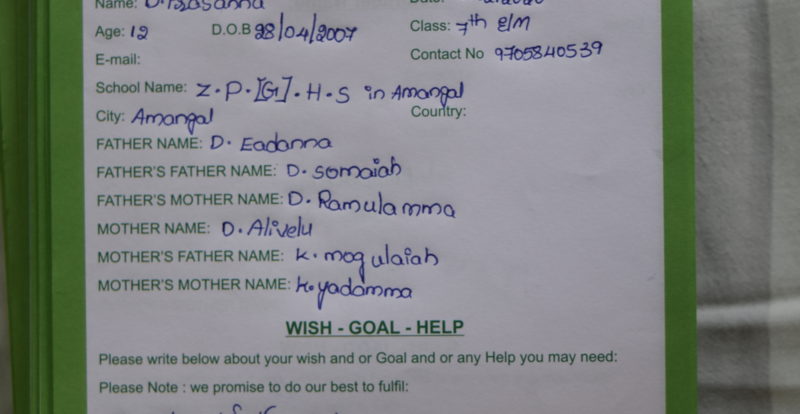 Name: D. Prasanna
Age: 12 D.O.B 28/04/2007 Class: 7th E/M
E-mail: Contact No 9705840539
School Name: Z.P.[G].H.S in Amangal
City: Amangal Country:
FATHER NAME: D. Eadanna
FATHER'S FATHER NAME: D. Somaiah
FATHER'S MOTHER NAME: D. Ramulamma
MOTHER NAME: D. Alivelu
MOTHER'S FATHER NAME: K. mogulaiah
MOTHER'S MOTHER NAME: K. yadamma
WISH - GOAL - HELP
Please write below about your wish and or Goal and or any Help you may need:
Please Note : we promise to do our best to fulfil: